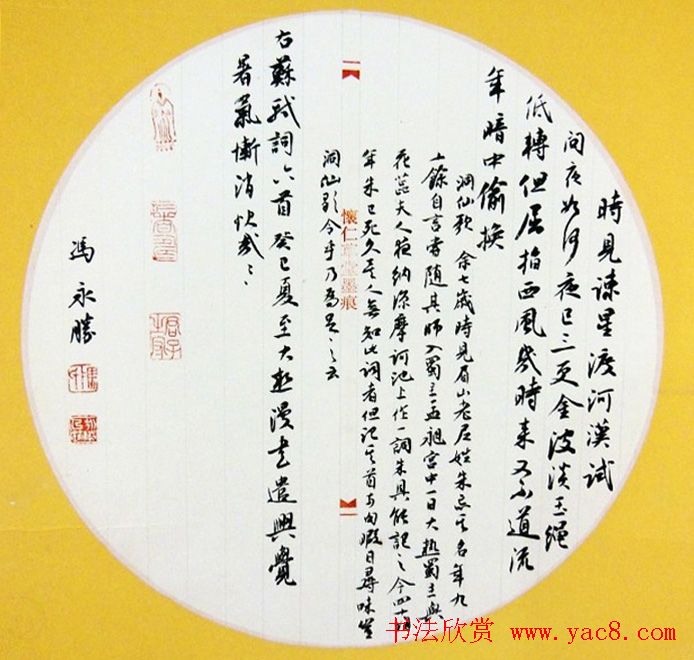 時見疎星渡河漢試
問夜如何夜已三更金波淡玉繩
低轉但屈指西風幾時來又不道流
年暗中偷換
洞仙歌 余七歲時見眉山老尼姓朱忘其名年九
十餘自言嘗隨其師入蜀主孟昶宮中一日大熱蜀主與
花蕊夫人夜納涼摩訶池上作一詞朱具能記之今四十
年朱已死久矣人無知此詞者但記其首兩句暇日尋味豈
洞仙歌令乎乃為足之云
懷仁草堂墨痕
右蘇軾詞六首癸巳夏至大熱漫書遣興覺
暑氣漸消快哉〻
馮永勝
书法欣赏 www.yac8.com